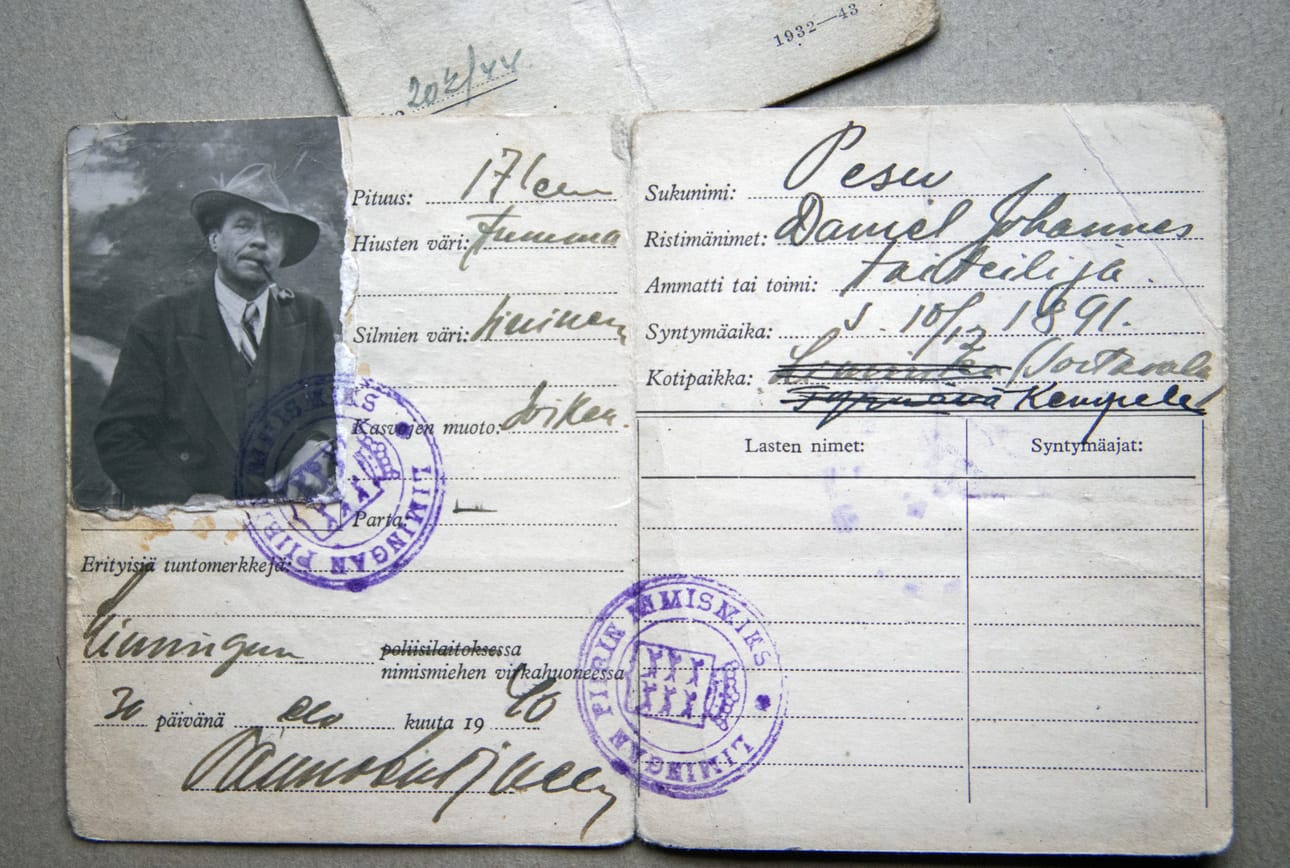 1932—43
20½/44
Pituus: 171 cm
Hiusten väri: tumma
Silmien väri: sininen
Kasvojen muoto: soikea.
Parta: —
Erityisiä tuntomerkkejä:
Limingan poliisilaitoksessa
nimismiehen virkahuoneessa
30 päivänä elo kuuta 1940
LIMINGAN PIIRIN NIMISMIES
Sukunimi: Pesu
Ristimänimet: Daniel Johannes
Ammatti tai toimi: taiteilija.
Syntymäaika: s. 10/12 1891.
Kotipaikka: Liminka (Sortavala)
Tyrnävä Kempele
Lasten nimet: Syntymäajat:
LIMINGAN PIIRIN NIMISMIES